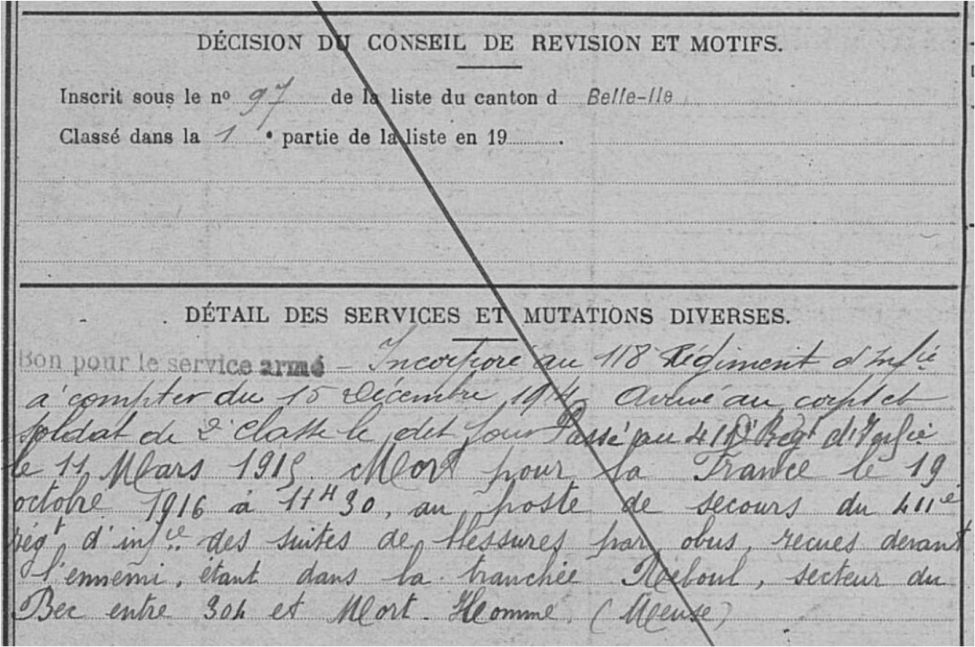 DÉCISION DU CONSEIL DE REVISION ET MOTIFS.
Inscrit sous le nº 97 de la liste du canton d Belle-Ile
Classé dans la 1 e partie de la liste en 19 .
DÉTAIL DES SERVICES ET MUTATIONS DIVERSES.
Bon pour le service armé - Incorporé au 118 Régiment d'Infie
à compter du 15 Décembre 1914 Arrivé au corps et
soldat de 2e classe le dit jour Passé au Régt d'Infie
le 11 Mars 1915. Mort pour la France le 19
octobre 1916 à 11H30, au poste de secours du 411e
régt d'infie des suites de blessures par obus, recues devant
l'ennemi, étant dans la tranchée Reboul, secteur du
Bec entre 304 et Mort-Homme (Meuse)